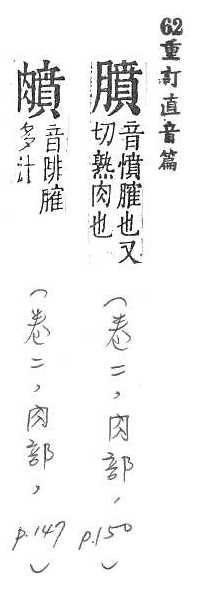 62重訂直音篇
膹音憤臛也又切熟肉也(卷二,肉部,p.150)
䐣音陫臛多汁(卷二,肉部,p.147)